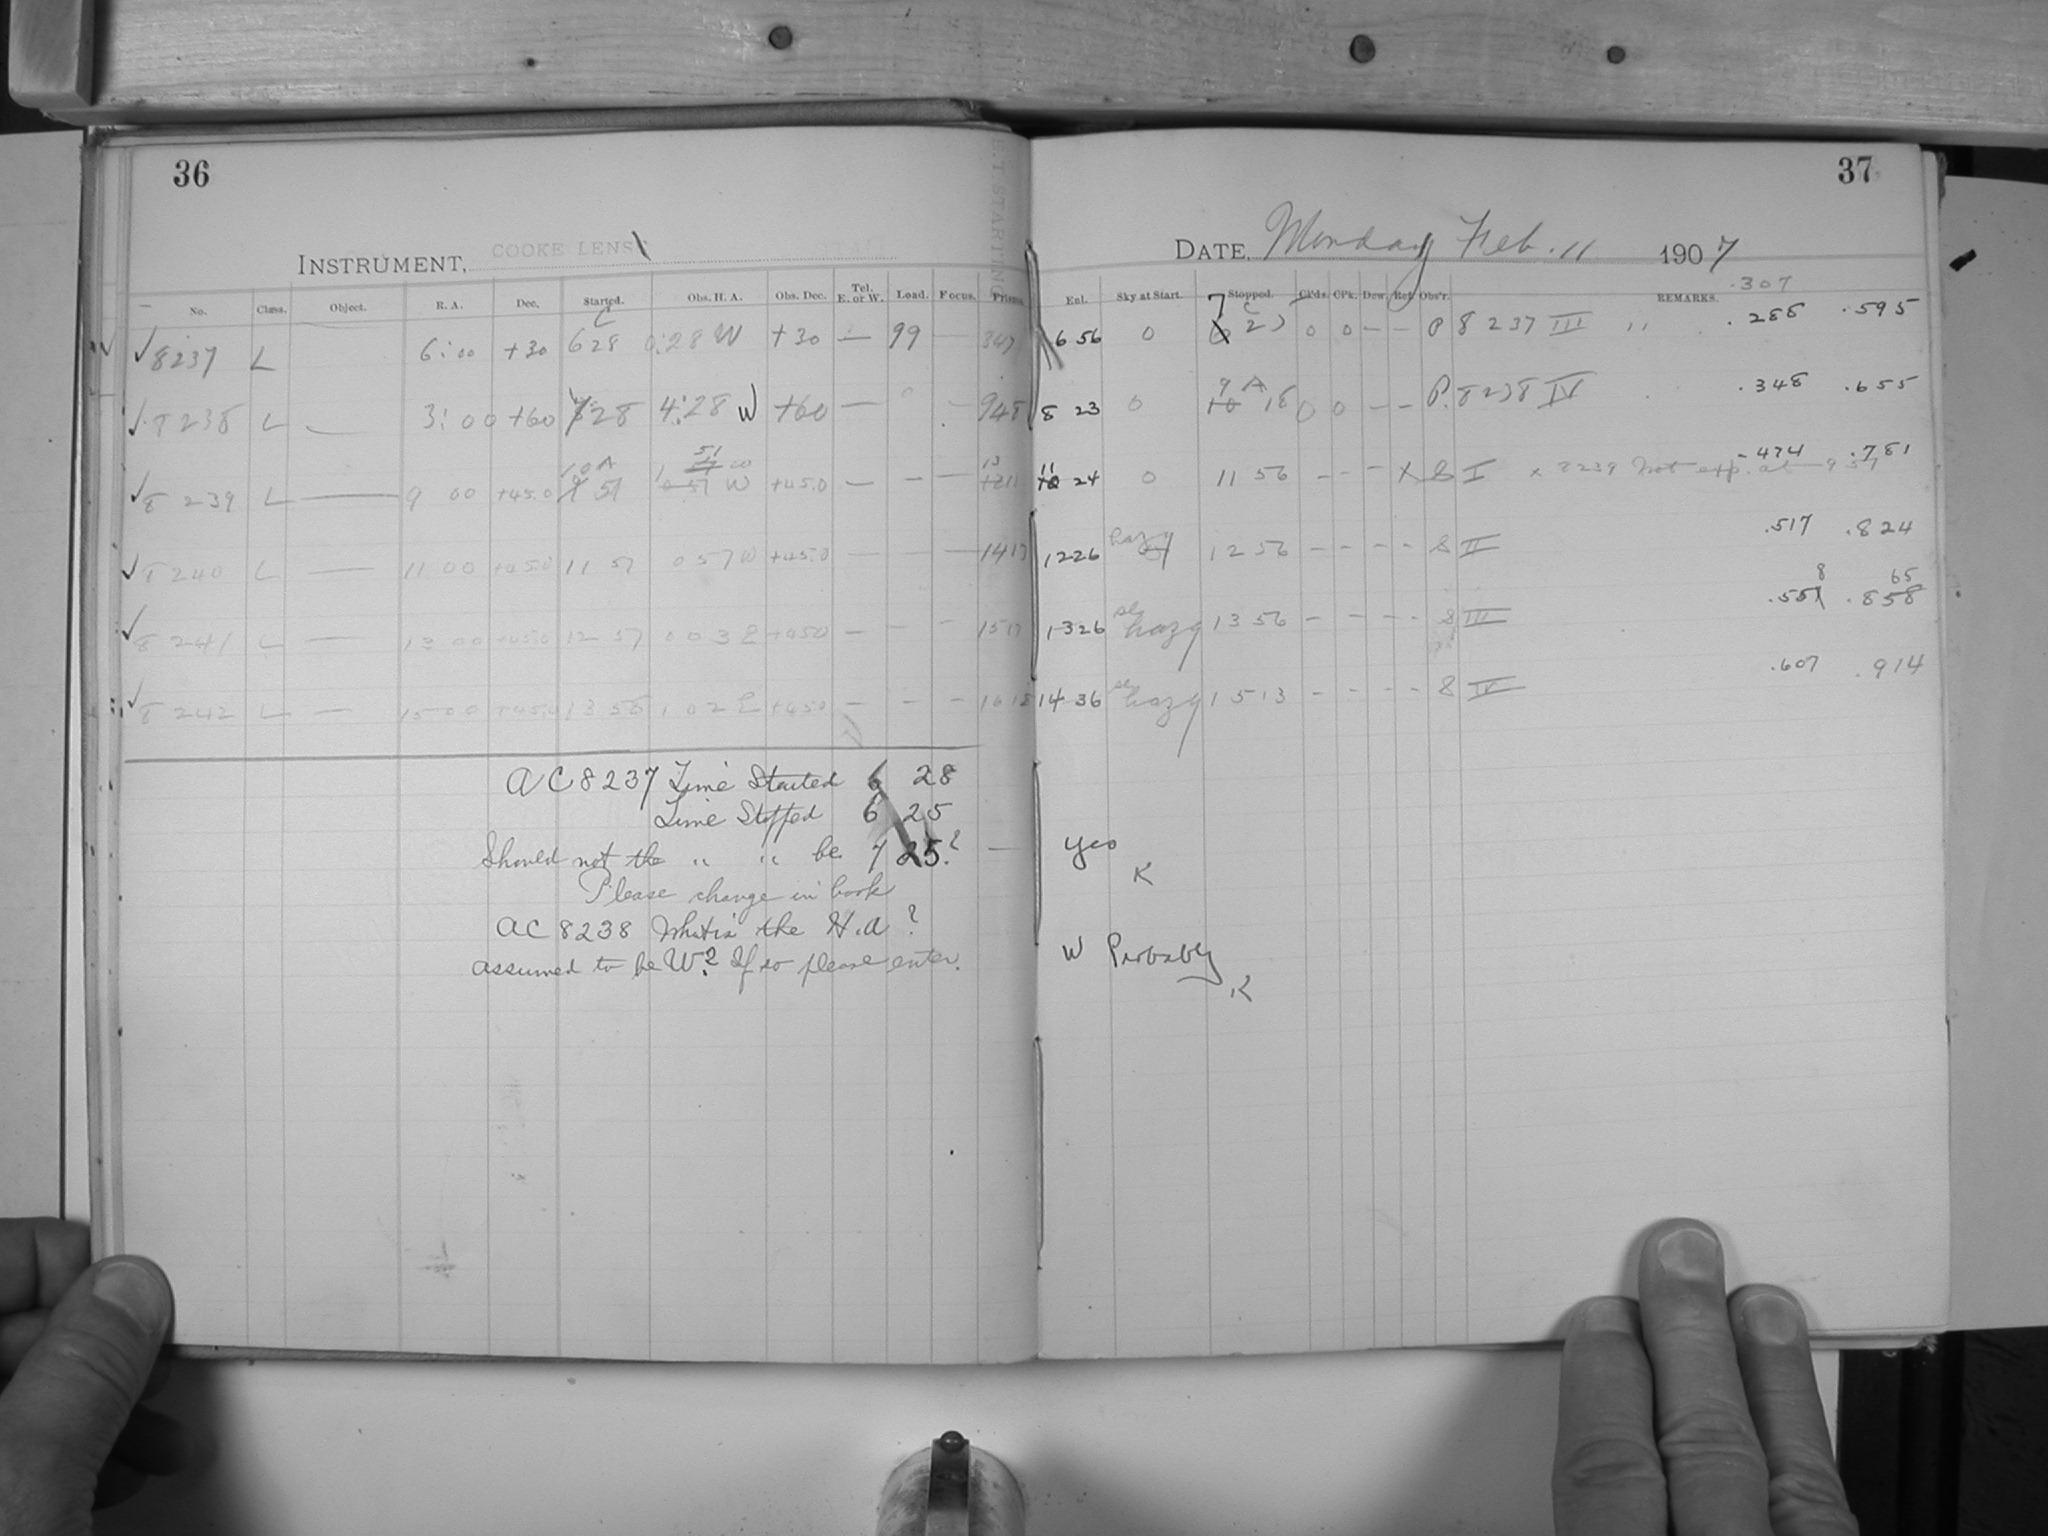 36
INSTRUMENT, COOKE LENS
No. Class. Object. R. A. Dec. Started. Obs. H. A. Obs. Dec. Tel. E. or W. Load. Focus. Prisms
8237 L 6:00 +30 6 28 0:28 W +30 — 99 — 347
8238 L — 3:00 +60 28 4:28 W +60 — 948
8239 L — 9 00 +45.0 10 57 1 57 W +45.0 — — —
8240 L — 11 00 +45.0 11 57 0 57 W +45.0 — — — 1417
8241 L — 13 00 +45.0 12 57 0 03 E +45.0 — — — 1517
8242 L — 15 00 +45.0 13 58 1 02 E +45.0 — — — 1618
AC 8237 Time Started 6 28
Time Stopped 6 25
Should not the " " be 7 25?
Please change in book
AC 8238 What is the H.A?
assumed to be W? If so please enter.
37
DATE, Monday Feb. 11 1907
.307
Enl. Sky at Start. Stopped. Cl'ds. CPk. Dew. Ref. Obs'r. REMARKS.
6 56 0 7 25 0 0 — — P 8237 III " .288 .595
8 23 0 9 18 0 0 — — P. 8238 IV .348 .655
11 24 0 11 56 — — — X S I x 8239 Not exp. at 9 57 .474 .781
12 26 hazy 12 56 — — — — S II .517 .824
8 65
13 26 sl hazy 13 56 — — — — S III .551 .858
14 36 sl hazy 15 13 — — — — S IV .607 .914
Yes
K
W Probably
K